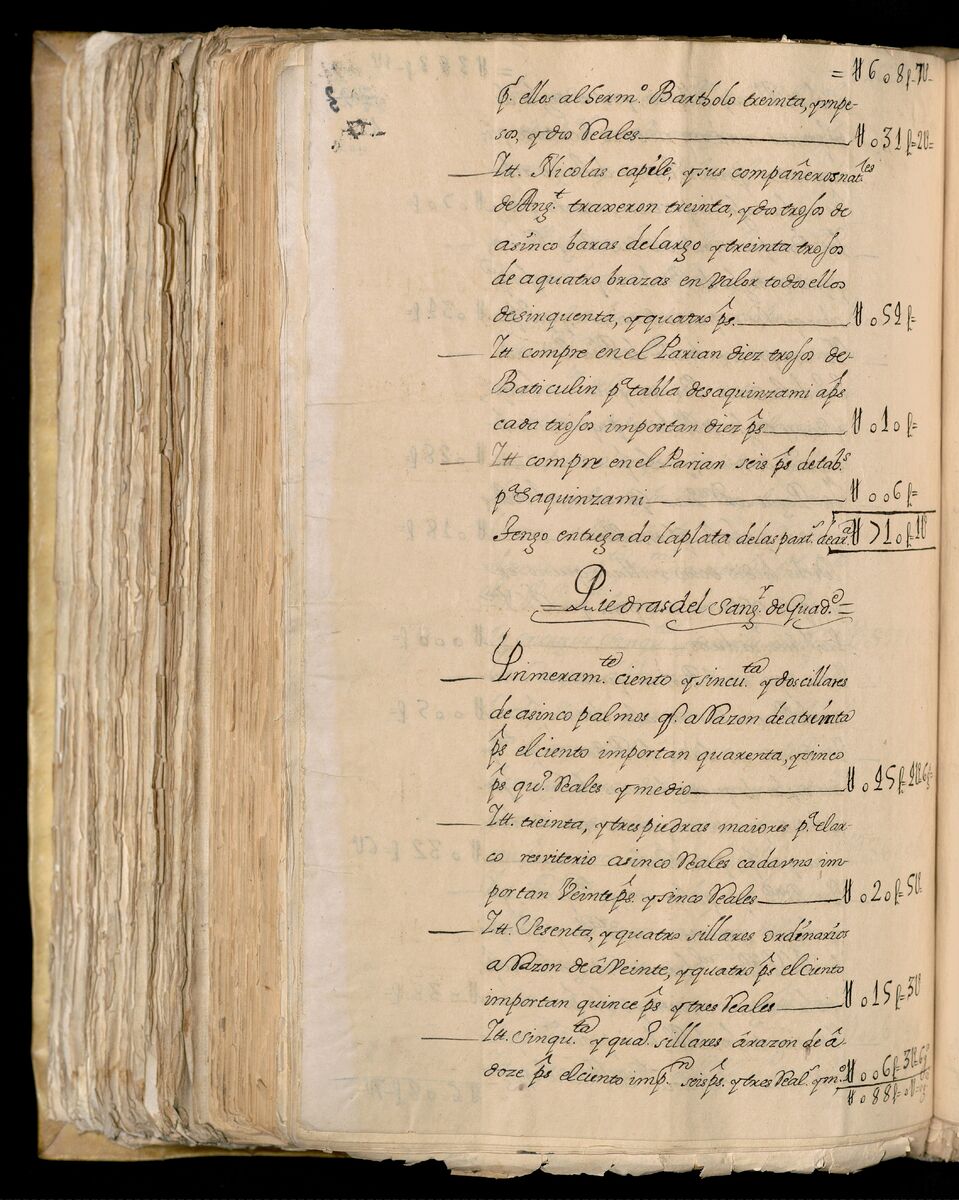 = U 6 o 8 p-7U-
p.r ellos al serm.o Bartholo treinta, y vn pe-
sos, y dos Reales U o 31 p=2U=
Itt. Nicolas capilé, y sus compañeros nat.les
de Ang.t traxeron treinta, y dos trosos de
asinco baras delargo y treinta trosos
de aquatro brazas en Valor todos ellos
desinquenta, y quatro p.s U o 54 p=
Itt compre en el Parian diez trosos de
Baticulin p.a tabla desaquinzami ap.s
cada trosos importan diez p.s U o 1 o p=
Itt compre en el Parian seis p.s de tab.s
p.a Saquinzami U o o 6 p=
Tengo entregado laplata delas part.s de ar.a U 71 o p=1U
= Piedras del Sang.r de Guad.e =
Primeram.te ciento y sincu.ta y dos cillares
de asinco palmos q.s a Razon de atreinta
p.s el ciento importan quarenta, y sinco
p.s qu.o Reales y medio U o 45 p=4U.6g
Itt. treinta, y tres piedras maiores p.a el ar-
co resviterio asinco Reales cada vno im-
portan Veinte p.s y sinco Reales U o 2 o p=5U
Itt. Sesenta, y quatro sillares ordinarios
a Razon de â Veinte, y quatro p.s el ciento
importan quince p.s y tres Reales U o 15 p=3U
Itt. sinqu.ta y qua.o sillares ârazon de â
doze p.s el ciento imp.n seis p.s y tres Real.s y m.o U o o 6 p=3U.6g
U o 88 p=o U=